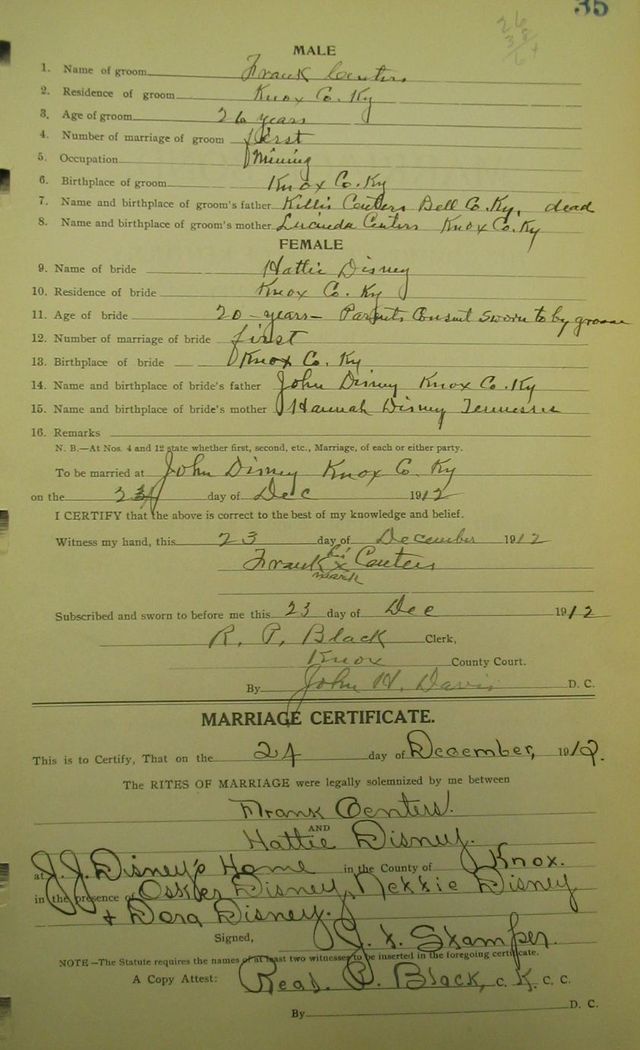 35
26
MALE
1. Name of groom Frank Centers
2. Residence of groom Knox Co. Ky
3. Age of groom 26 years
4. Number of marriage of groom first
5. Occupation Mining
6. Birthplace of groom Knox Co. Ky
7. Name and birthplace of groom's father Killis Centers Bell Co. Ky, dead
8. Name and birthplace of groom's mother Lucinda Centers Knox Co. Ky
FEMALE
9. Name of bride Hattie Disney
10. Residence of bride Knox Co. Ky
11. Age of bride 20 - years - Parents Consent Sworn to by groom
12. Number of marriage of bride first
13. Birthplace of bride Knox Co. Ky
14. Name and birthplace of bride's father John Disney Knox Co. Ky
15. Name and birthplace of bride's mother Hannah Disney Tennessee
16. Remarks
N. B.—At Nos. 4 and 12 state whether first, second, etc., Marriage, of each or either party.
To be married at John Disney Knox Co. Ky
on the day of Dec 1912
I CERTIFY that the above is correct to the best of my knowledge and belief.
Witness my hand, this 23 day of December 1912
Frank his x Centers
mark
Subscribed and sworn to before me this 23 day of Dec 1912
R. P. Black Clerk,
Knox County Court.
By John H. Davis D. C.
MARRIAGE CERTIFICATE.
This is to Certify, That on the 24 day of December, 1912.
The RITES OF MARRIAGE were legally solemnized by me between
Frank Centers.
AND
Hattie Disney.
at J. J. Disney's Home in the County of Knox.
in the presence of Disney, Disney
+ Dora Disney.
Signed, Stamper.
NOTE—The Statute requires the names of at least two witnesses to be inserted in the foregoing certificate.
A Copy Attest: Read. P. Black, C. K. C. C.
By D. C.